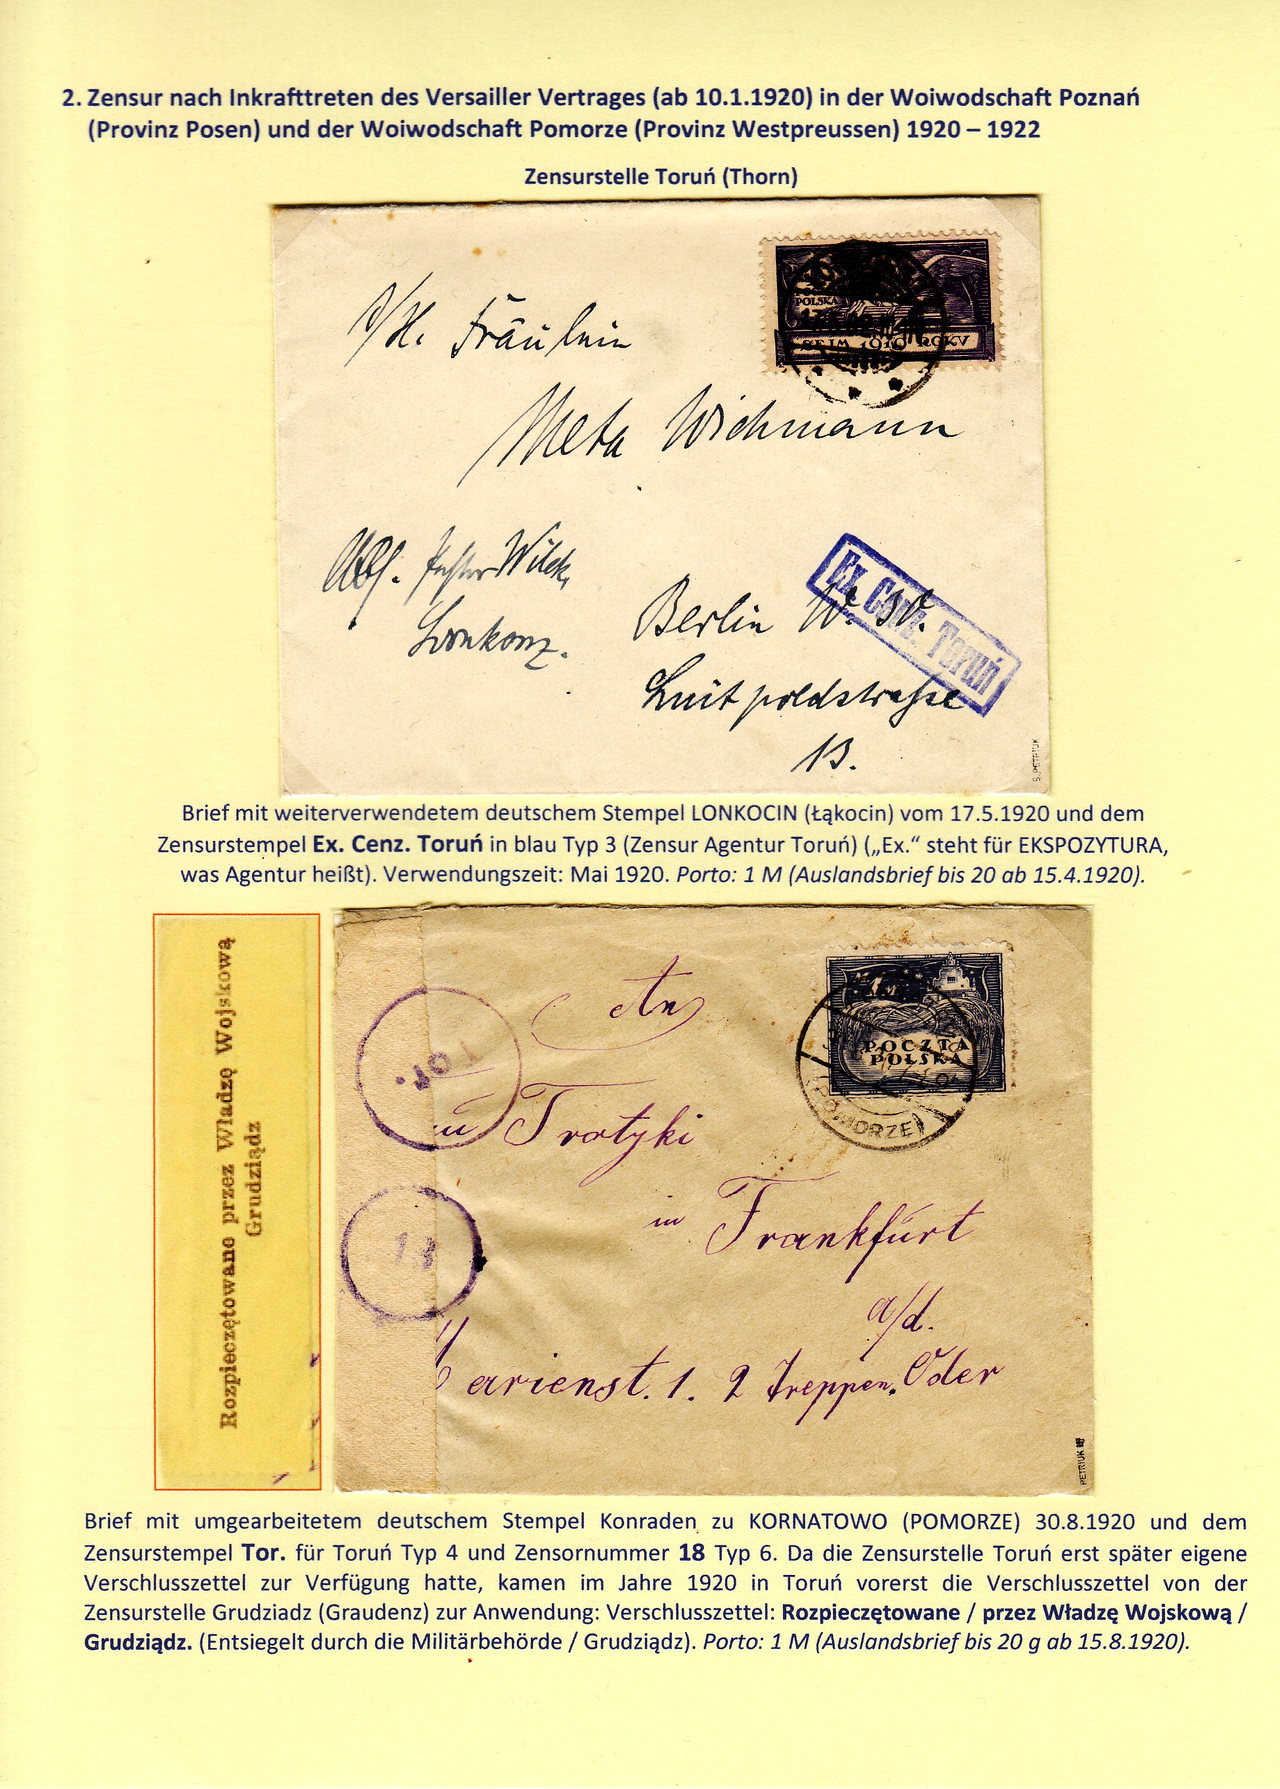 2. Zensur nach Inkrafttreten des Versailler Vertrages (ab 10.1.1920) in der Woiwodschaft Poznań
(Provinz Posen) und der Woiwodschaft Pomorze (Provinz Westpreussen) 1920 – 1922
Zensurstelle Toruń (Thorn)
POLSKA
SEJM 1919 ROKU
Fräulein
Meta Wichmann
Abs. Pastor Wilck,
Lonkorz.
Ex. Cenz. Toruń
Berlin W. 30.
Luitpoldstrasse
13.
S. PETRIUK
Brief mit weiterverwendetem deutschem Stempel LONKOCIN (Łąkocin) vom 17.5.1920 und dem
Zensurstempel Ex. Cenz. Toruń in blau Typ 3 (Zensur Agentur Toruń) („Ex.“ steht für EKSPOZYTURA,
was Agentur heißt). Verwendungszeit: Mai 1920. Porto: 1 M (Auslandsbrief bis 20 ab 15.4.1920).
Rozpieczętowane przez Władzę Wojskową
Grudziądz
An
Tor.
POCZTA
POLSKA
(POMORZE)
zu Tratzki
in Frankfurt
18
a/d.
Marienst. 1. 2 Treppen. Oder
PETRIUK
Brief mit umgearbeitetem deutschem Stempel Konraden zu KORNATOWO (POMORZE) 30.8.1920 und dem
Zensurstempel Tor. für Toruń Typ 4 und Zensornummer 18 Typ 6. Da die Zensurstelle Toruń erst später eigene
Verschlusszettel zur Verfügung hatte, kamen im Jahre 1920 in Toruń vorerst die Verschlusszettel von der
Zensurstelle Grudziadz (Graudenz) zur Anwendung: Verschlusszettel: Rozpieczętowane / przez Władzę Wojskową /
Grudziądz. (Entsiegelt durch die Militärbehörde / Grudziądz). Porto: 1 M (Auslandsbrief bis 20 g ab 15.8.1920).